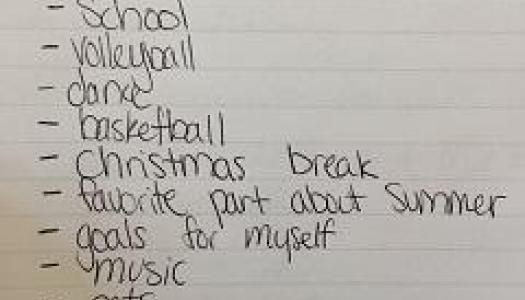 - School
- volleyball
- dance
- basketball
- Christmas break
- favorite part about Summer
- goals for myself
- music